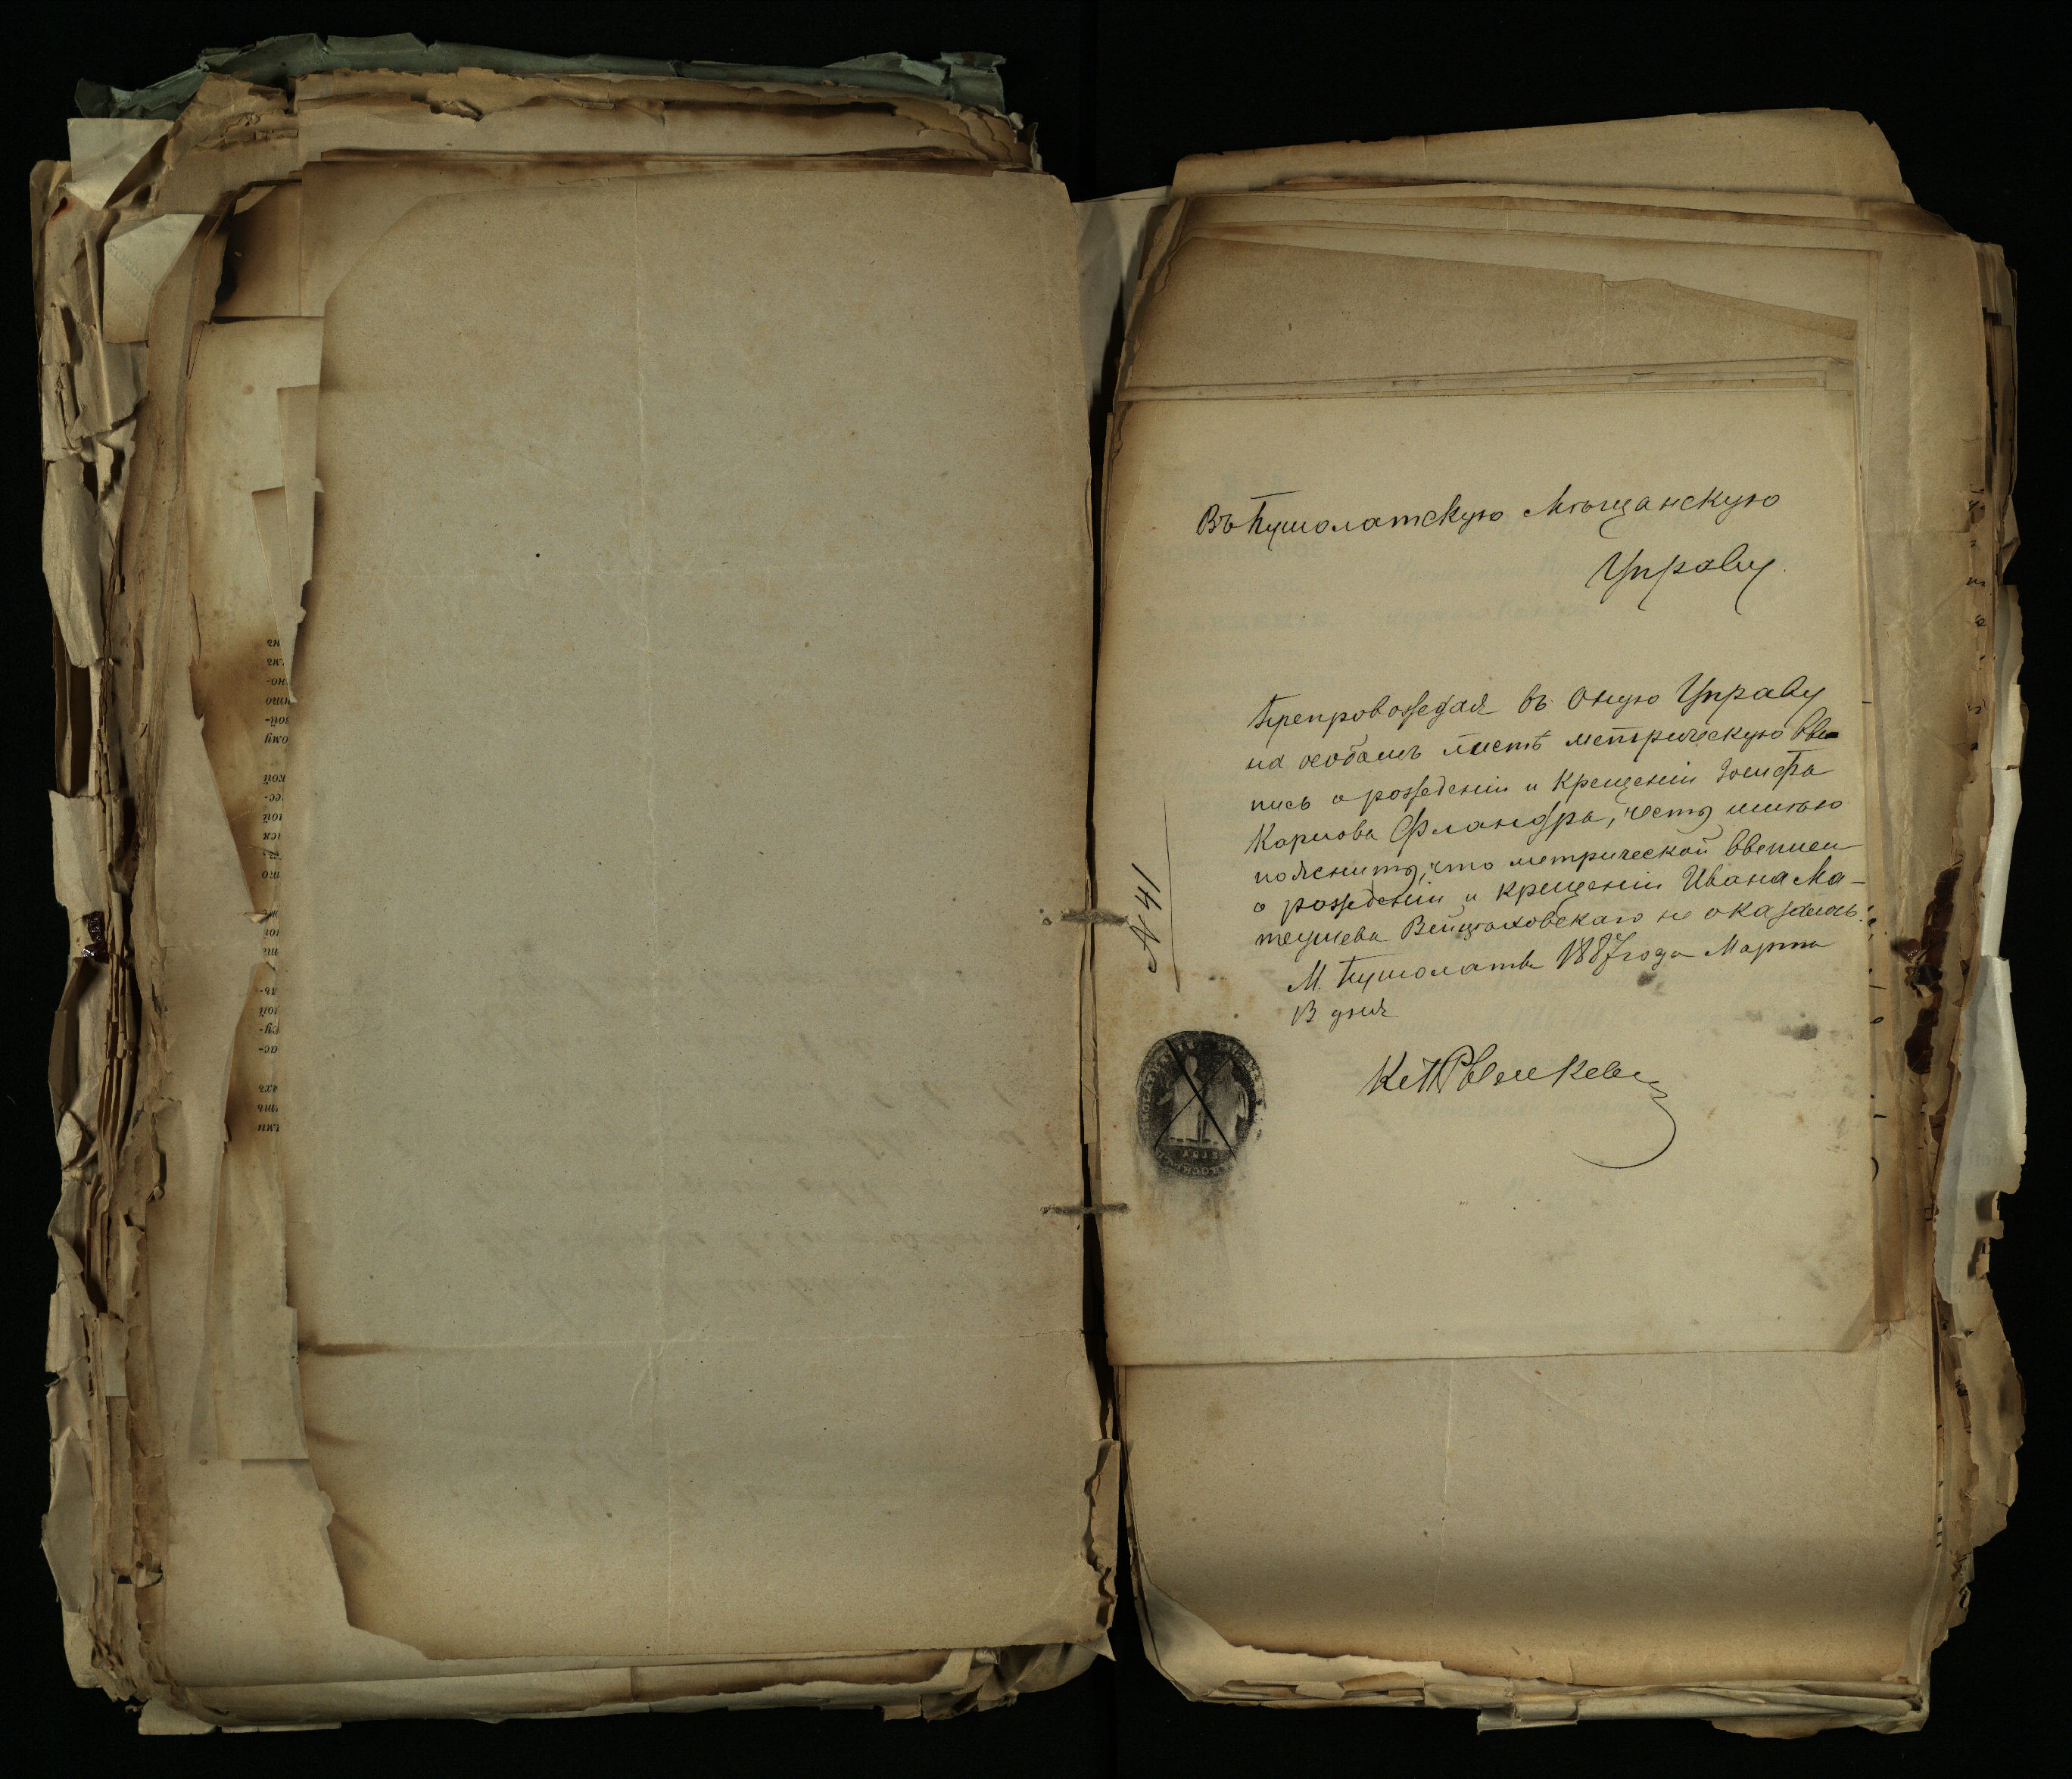 Въ Пушолатскую Мѣщанскую
Управу.
Препровождая въ оную Управу
на особомъ листѣ метрическую вы-
пись о рожденіи и крещеніи Іосифа
Карлова Фландра, честь имѣю
пояснить, что метрической выписи
о рожденіи и крещеніи Ивана Ма-
теушева не оказалось.
М. Пушолаты 1887 года Марта
13 дня
N 41